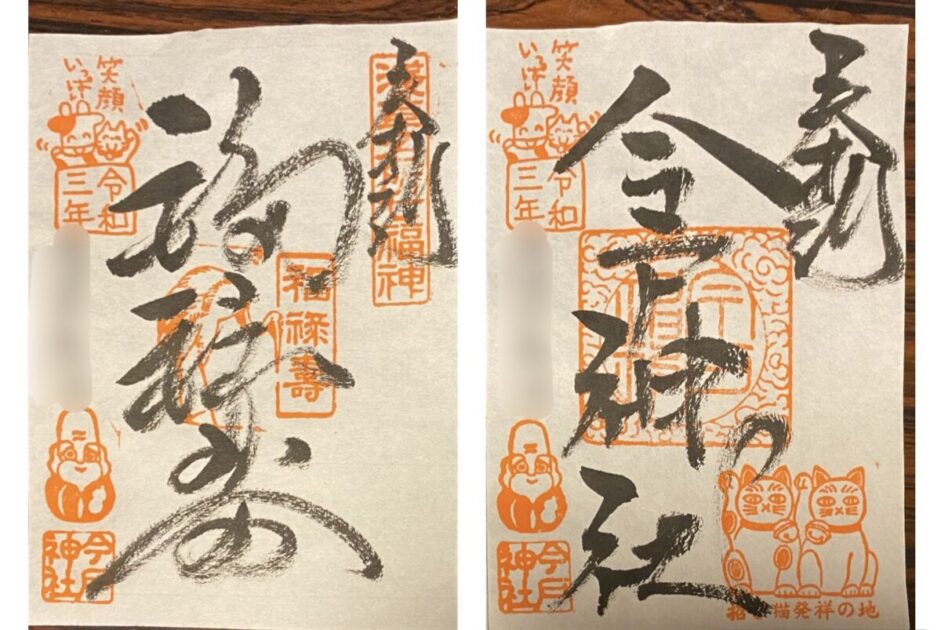 奉拝
福神
福禄寿
福禄壽
笑顔
いっぱい
令和
三年
今戸
神社
奉拝
今戸神社
笑顔
いっぱい
令和
三年
今戸
神社
招き猫発祥の地